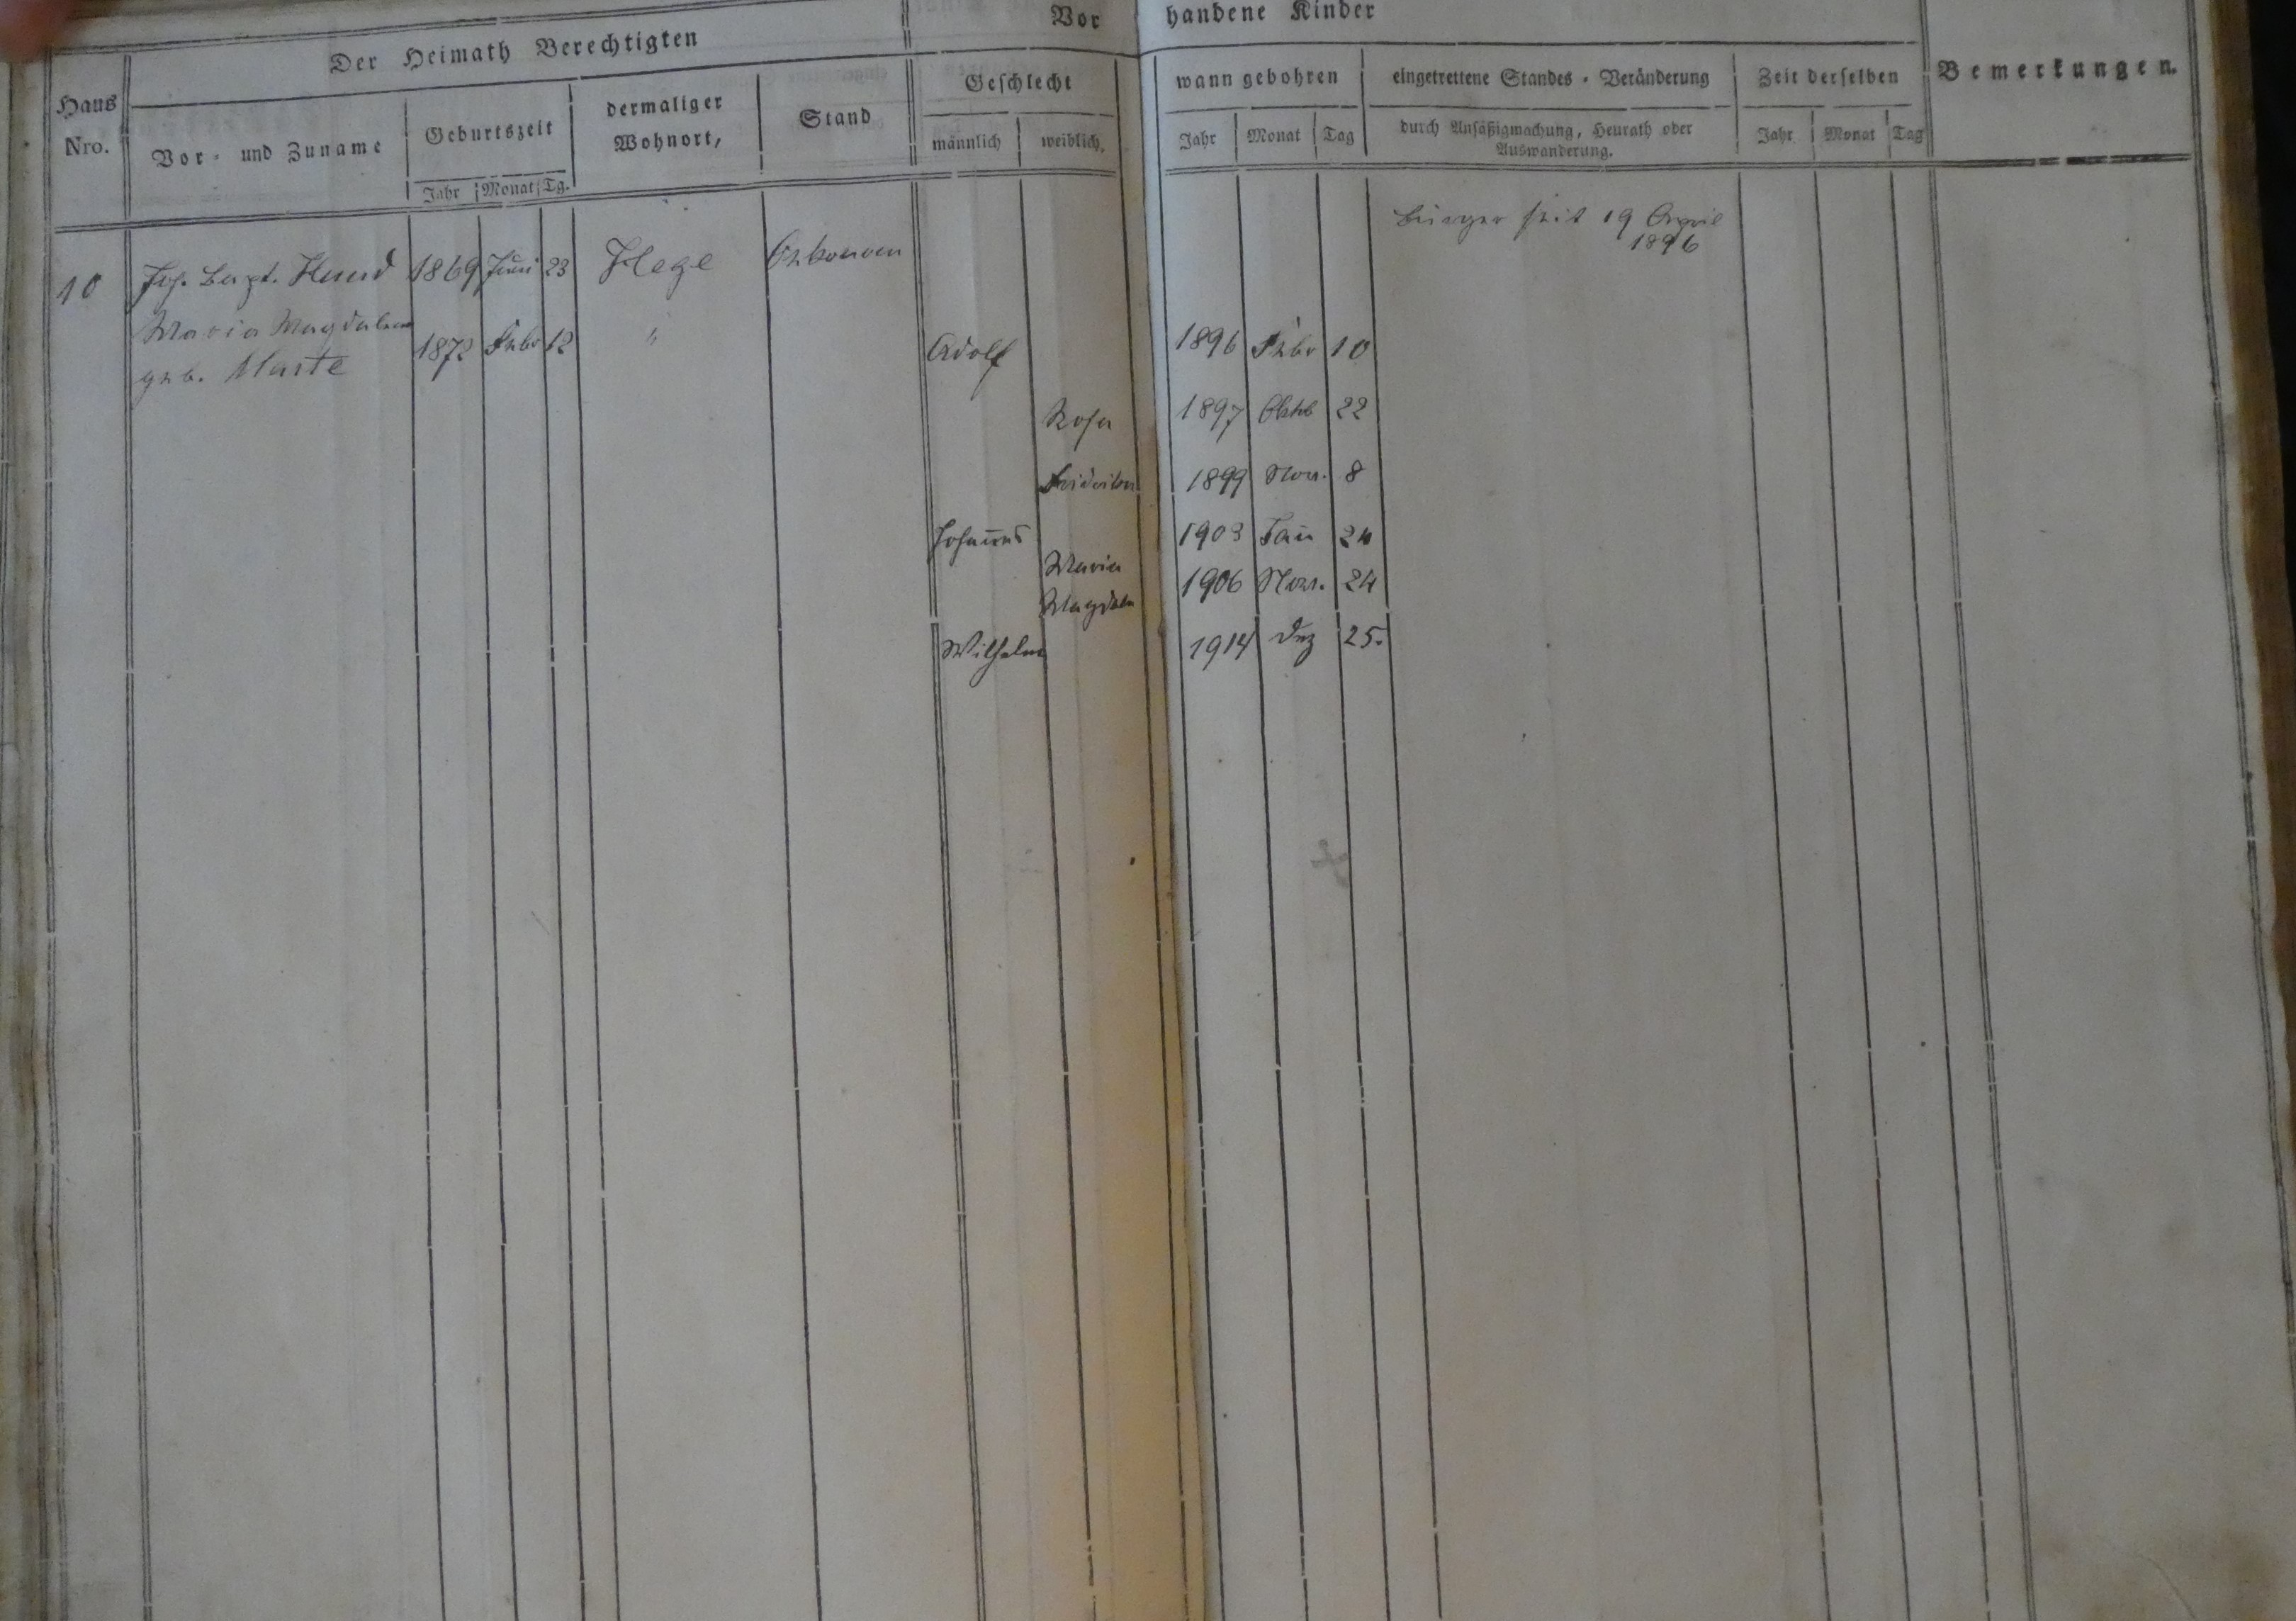 Vorhandene Kinder
Der Heimath Berechtigten
Haus Nro.
Vor- und Zuname
Geburtszeit
Jahr Monat Tg.
dermaliger Wohnort,
Stand
Geschlecht
männlich weiblich,
wann gebohren
Jahr Monat Tag
eingetrettene Standes-Veränderung
durch Ansäßigmachung, Heurath oder
Auswanderung.
Zeit derselben
Jahr Monat Tag
Bemerkungen.
Bürger seit 19 April
1896
10 Joh. Bapt. Hund 1869 Juni 23 Hege Ökonom
Maria Magdalena
geb. Marte 1872 Febr 12 " Adolf 1896 Febr 10
Rosa 1897 Oktb 22
1899 Nov. 8
Johannes 1903 24
Maria
Magdalena 1906 Nov. 24
Wilhelm 1914 Dez 25.